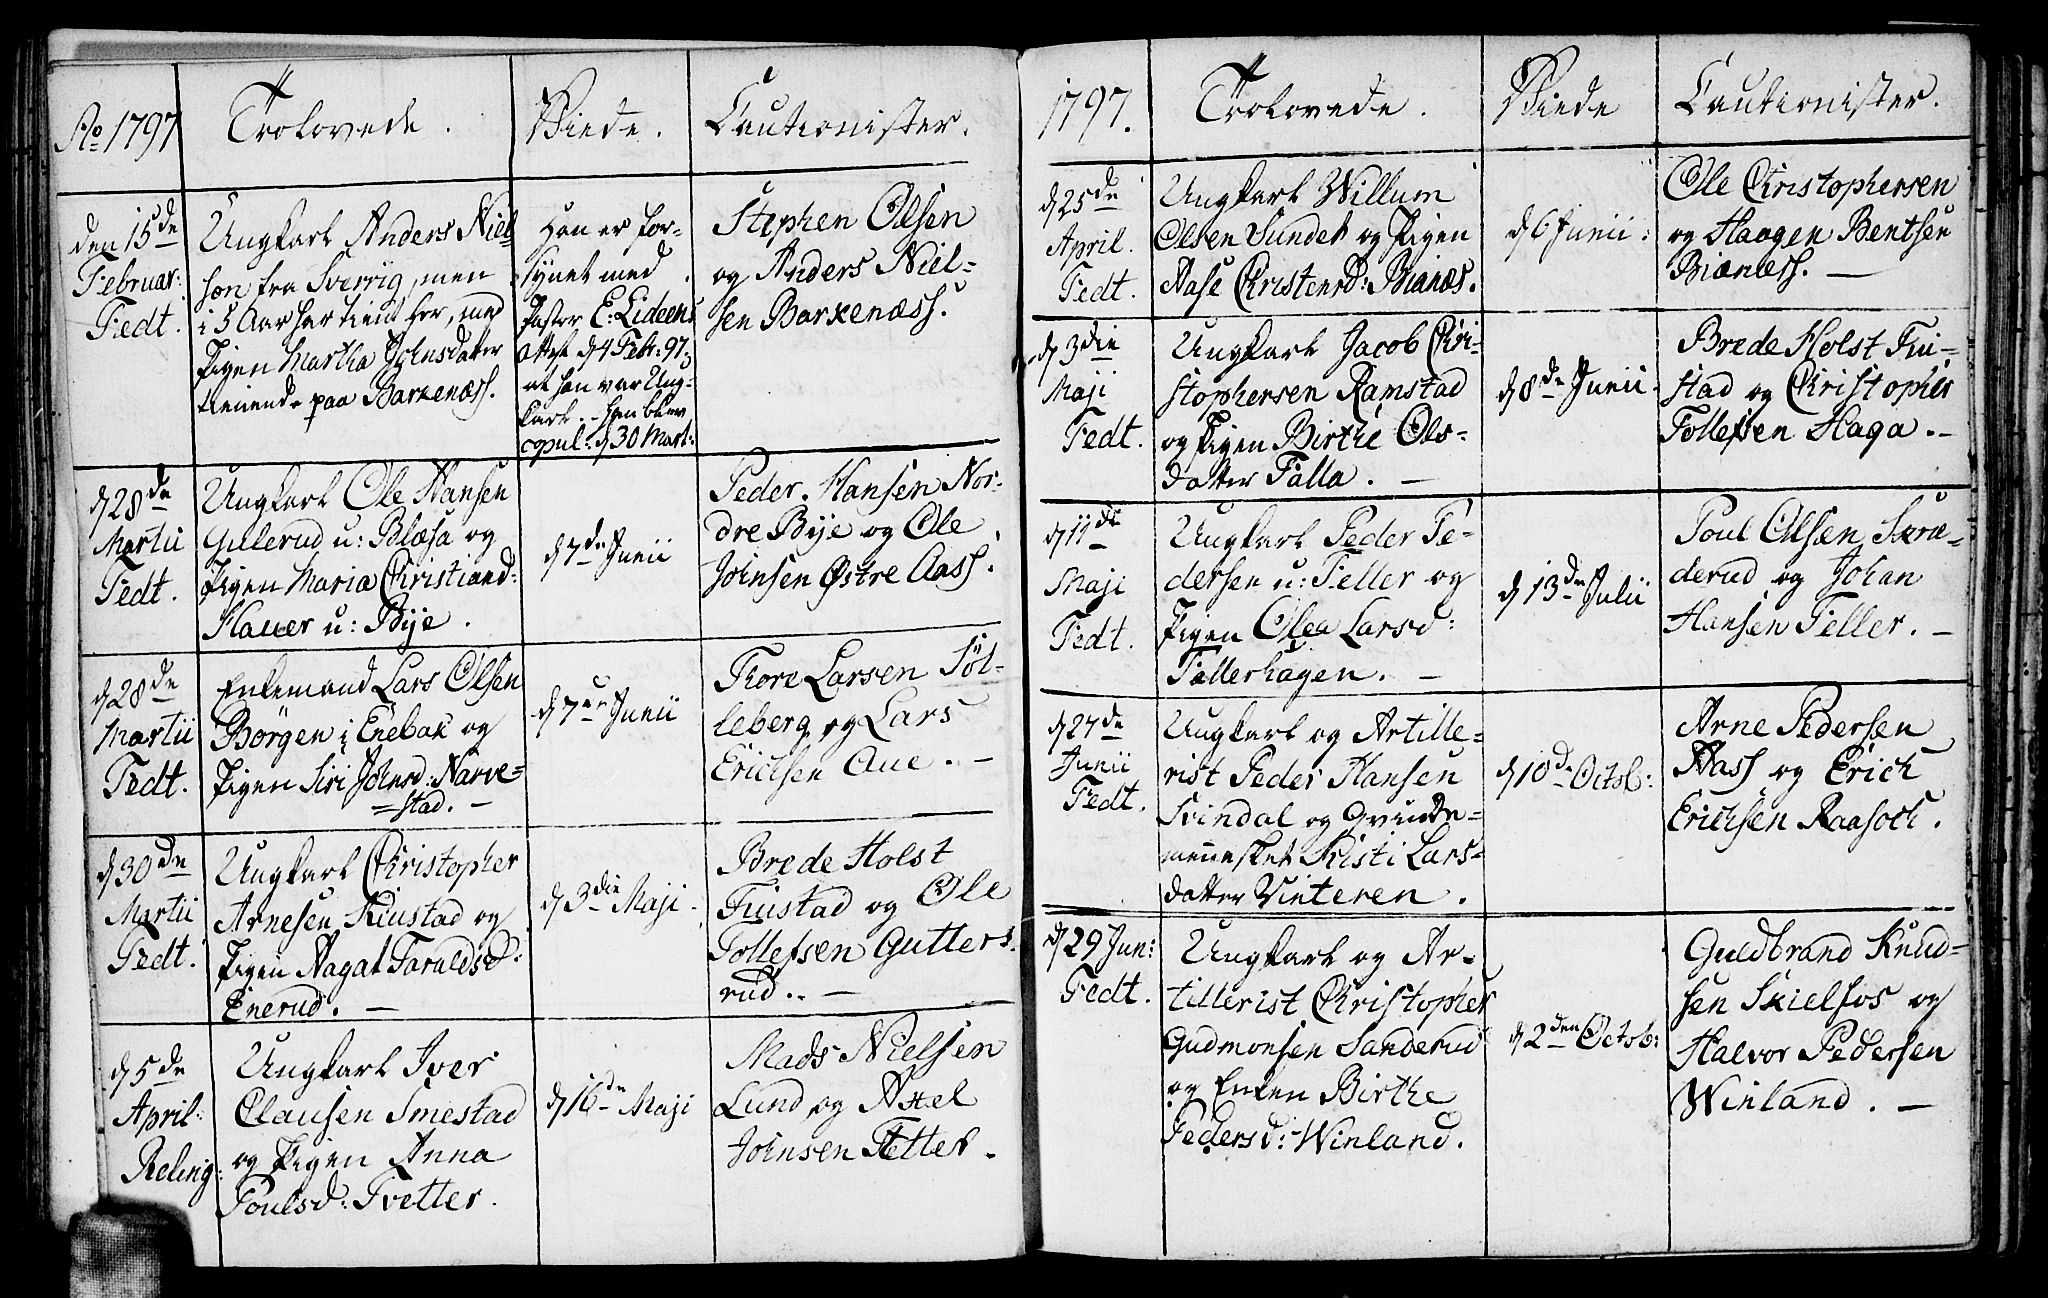 Ao 1797
Trolovede.
Viede.
Cautionister.
den 15de
Februar:
Fedt.
Ungkarl Anders Niel-
sen fra Sverrig, men
i 5 Aar har tient her, med
Pigen Martha Johnsdatter
tienende paa Barkenæss.
Han er for-
synet med
Pastor E: Lideens
Attest d 4 Febr. 97,
at han var Ung-
karl. - han blev
copul: d 30 Mart:
Stephen Olsen
og Anders Niel-
sen Barkenæss.
d 28de
Martii
Fedt.
Ungkarl Ole Hansen
Gulerud u: Blæsa og
Pigen Maria Christiand:
Hauer u: Bye.
d 7de Junii
Peder Hansen Nor-
dre Bye og Ole
Johnsen Østre Aass.
d 28de
Martii
Fedt.
Enkemand Lars Olsen
Børgen i Enebak og
Pigen Siri Johnsd: Narve-
=stad. -
d 7de Junii
Thore Larsen Søl-
leberg og Lars
Erichsen Aue. -
d 30de
Martii
Fedt.
Ungkarl Christopher
Arnesen Kiustad og
Pigen Aagat Taraldsd:
Enerud. -
d 3die Maji
Brede Holst
Fiustad og Ole
Tollefsen Gutters-
rud. -
d 5de
April:
Reling:
Ungkarl Iver
Clausen Smestad
og Pigen Anna
Poulsd: Tvetter.
d 16de Maji
Mads Nielsen
Lund og Axel
Johnsen Tetter.
1797.
Trolovede.
Viede
Cautionister.
d 25de
April.
Fedt.
Ungkarl Willum
Olsen Sundet og Pigen
Aase Christensd: Bianæs.
d 6 Junii:
Ole Christophersen
og Haagen Bentsen
Bianæss. -
d 3die
Maji
Fedt.
Ungkarl Jacob Chri-
stophersen Ramstad
og Pigen Birthe Ols-
datter Falla. -
d 8de Junii.
Brede Holst Fiu-
stad og Christopher
Tollefsen Haga. -
d 11de
Maji
Fedt.
Ungkarl Peder Pe-
dersen u: Teller og
Pigen Olea Larsd:
Tellerhagen. -
d 13de Julii
Poul Olsen Skræ-
derud og Johan
Hansen Teller. -
d 27de
Junii
Fedt.
Ungkarl og Artille-
rist Peder Hansen
Svindal og Qvinde-
mennesket Kisti Lars-
datter Vinteren.
d 10de Octob:
Arne Pedersen
Aass og Erich
Erichsen Raasoch.
d 29 Jun:
Fedt.
Ungkarl og Ar-
tillerist Christopher
Gudmonsen Sanderud
og Enken Birthe
Pedersd: Winland.
d 2den Octob:
Guldbrand Knud-
sen Skielfos og
Halvor Pedersen
Winland. -